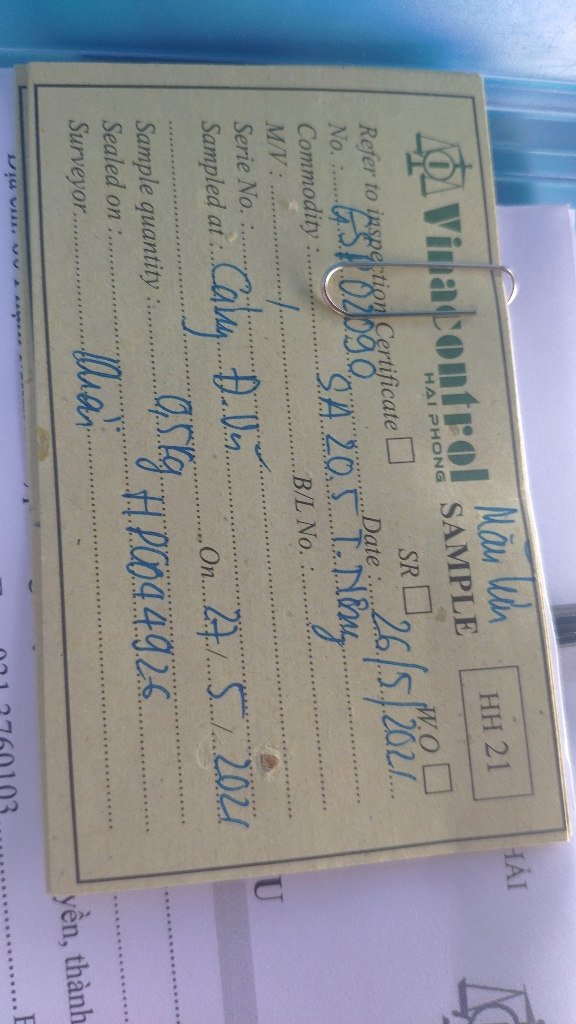 Mẫu lưu
Vinacontrol
HAI PHONG
SAMPLE
HH 21
Refer to inspection Certificate SR W.O
No.: 02090 Date: 26/5/2021
Commodity: SA 20.5 T.Nông
M/V: / B/L No.:
Serie No.:
Sampled at: Cảng Đ.Vũ On 27/5/2021
Sample quantity: 0,5kg
Sealed on: HP0094926
Surveyor
031.3760103
yền, thành
HẢI
U